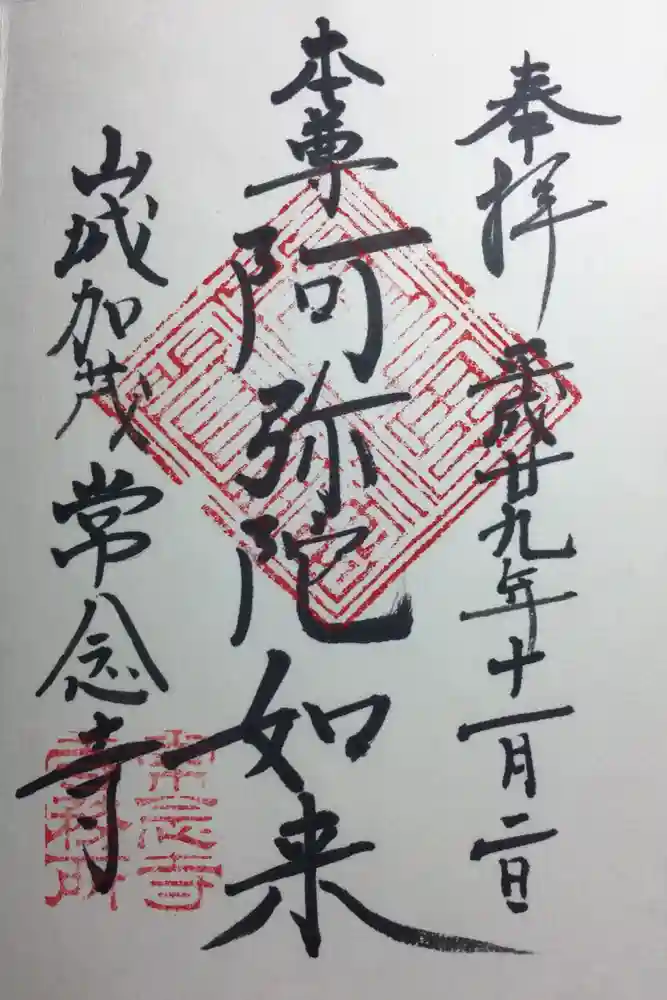 奉拝
平成廿九年十一月二日
本尊阿弥陀如来
山城加茂
常念寺
常念寺
寺務所